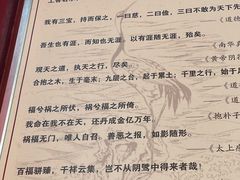 我有三宝，持而保之，一曰慈，二曰俭，三曰不敢为天下先
《道
吾生也有涯，而知也无涯，以有涯随无涯，殆矣。
观天之道，执天之行，尽矣。
《南华
合抱之木，生于毫末；九层之台，起于累土；千里之行，始于
《黄帝阴
《道
福兮祸之所伏，祸兮福之所倚。
我命在我不在天，还丹成金亿万年。
《抱朴子
祸福无门，唯人自召，善恶之报，如影随形。
《太上
百福骈臻，千祥云集，岂不从阴骘中得来者哉！